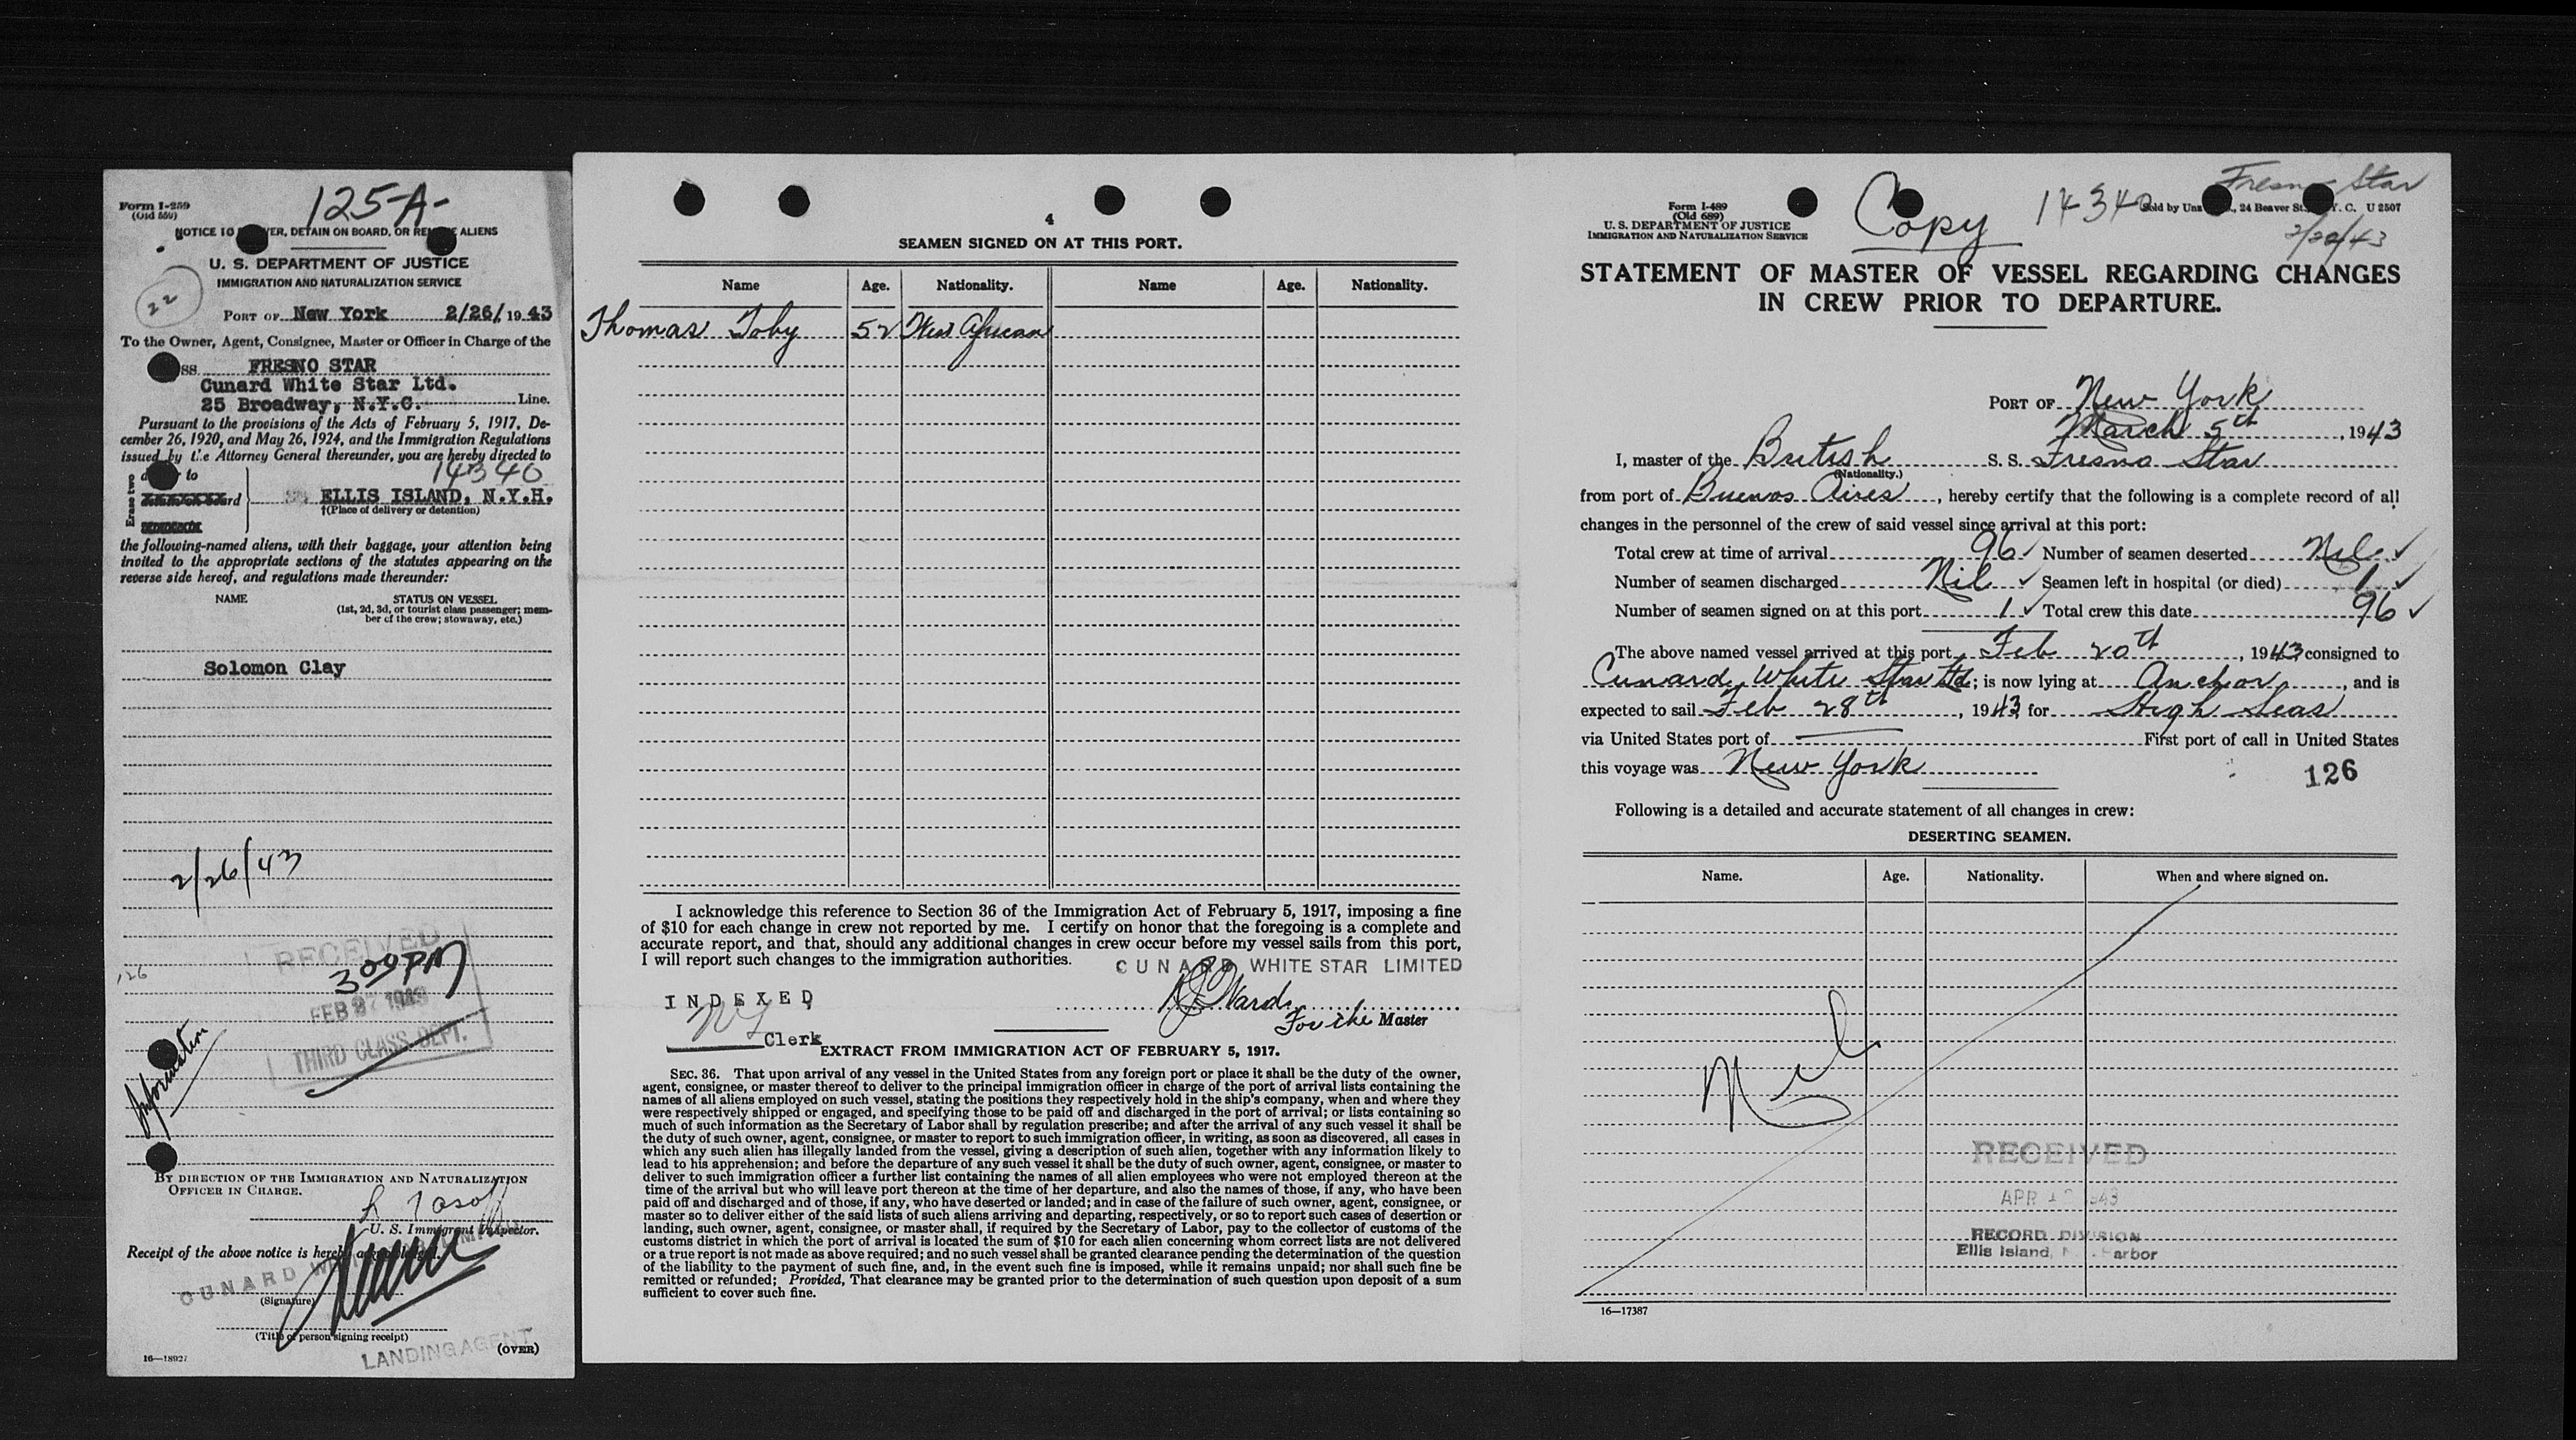 125-A-
Form I-259
(Old 550)
ALIENS
U. S. DEPARTMENT OF JUSTICE
IMMIGRATION AND NATURALIZATION SERVICE
22
PORT OF New York 2/26/, 1943
To the Owner, Agent, Consignee, Master or Officer in Charge of the
SS FRESNO STAR
Cunard White Star Ltd.
25 Broadway, N.Y.C. Line.
Pursuant to the provisions of the Acts of February 5, 1917, De-
cember 26, 1920, and May 26, 1924, and the Immigration Regulations
issued by the Attorney General thereunder, you are hereby directed to
14340
to
Erase two
ELLIS ISLAND, N.Y.H.
†(Place of delivery or detention)
the following-named aliens, with their baggage, your attention being
invited to the appropriate sections of the statutes appearing on the
reverse side hereof, and regulations made thereunder:
NAME STATUS ON VESSEL
(1st, 2d, 3d, or tourist class passenger; mem-
ber of the crew; stowaway, etc.)
Solomon Clay
2/26/43
RECEIVED
3 00 PM
126
THIRD CLASS DEPT.
Information
BY DIRECTION OF THE IMMIGRATION AND NATURALIZATION
OFFICER IN CHARGE.
U. S. Immigrant Inspector.
Receipt of the above notice is hereby acknowledged.
CUNARD
(Signature)
(Title of person signing receipt)
LANDING AGENT
16—18927 (OVER)
4
SEAMEN SIGNED ON AT THIS PORT.
Name Age. Nationality. Name Age. Nationality.
Thomas Toby 52 West African
I acknowledge this reference to Section 36 of the Immigration Act of February 5, 1917, imposing a fine
of $10 for each change in crew not reported by me. I certify on honor that the foregoing is a complete and
accurate report, and that, should any additional changes in crew occur before my vessel sails from this port,
I will report such changes to the immigration authorities.
CUNARD WHITE STAR LIMITED
INDEXED
Ward
For the Master
Clerk
EXTRACT FROM IMMIGRATION ACT OF FEBRUARY 5, 1917.
SEC. 36. That upon arrival of any vessel in the United States from any foreign port or place it shall be the duty of the owner,
agent, consignee, or master thereof to deliver to the principal immigration officer in charge of the port of arrival lists containing the
names of all aliens employed on such vessel, stating the positions they respectively hold in the ship's company, when and where they
were respectively shipped or engaged, and specifying those to be paid off and discharged in the port of arrival; or lists containing so
much of such information as the Secretary of Labor shall by regulation prescribe; and after the arrival of any such vessel it shall be
the duty of such owner, agent, consignee, or master to report to such immigration officer, in writing, as soon as discovered, all cases in
which any such alien has illegally landed from the vessel, giving a description of such alien, together with any information likely to
lead to his apprehension; and before the departure of any such vessel it shall be the duty of such owner, agent, consignee, or master to
deliver to such immigration officer a further list containing the names of all alien employees who were not employed thereon at the
time of the arrival but who will leave port thereon at the time of her departure, and also the names of those, if any, who have been
paid off and discharged and of those, if any, who have deserted or landed; and in case of the failure of such owner, agent, consignee, or
master so to deliver either of the said lists of such aliens arriving and departing, respectively, or so to report such cases of desertion or
landing, such owner, agent, consignee, or master shall, if required by the Secretary of Labor, pay to the collector of customs of the
customs district in which the port of arrival is located the sum of $10 for each alien concerning whom correct lists are not delivered
or a true report is not made as above required; and no such vessel shall be granted clearance pending the determination of the question
of the liability to the payment of such fine, and, in the event such fine is imposed, while it remains unpaid; nor shall such fine be
remitted or refunded; Provided, That clearance may be granted prior to the determination of such question upon deposit of a sum
sufficient to cover such fine.
Form I-489
(Old 689)
U. S. DEPARTMENT OF JUSTICE
IMMIGRATION AND NATURALIZATION SERVICE
Copy
14340
Fresno Star
Sold by Unz 24 Beaver St., N. Y. C. U 2507
2/20/43
STATEMENT OF MASTER OF VESSEL REGARDING CHANGES
IN CREW PRIOR TO DEPARTURE.
PORT OF New York
March 5th, 1943
I, master of the British S. S. Fresno Star
(Nationality.)
from port of Buenos Aires, hereby certify that the following is a complete record of all
changes in the personnel of the crew of said vessel since arrival at this port:
Total crew at time of arrival 96 ✓ Number of seamen deserted Nil ✓
Number of seamen discharged Nil ✓ Seamen left in hospital (or died) 1 ✓
Number of seamen signed on at this port 1 ✓ Total crew this date 96 ✓
The above named vessel arrived at this port Feb 20th, 1943 consigned to
Cunard White Star Ltd; is now lying at Anchor, and is
expected to sail Feb 28th, 1943 for High Seas
via United States port of — First port of call in United States
this voyage was New York
126
Following is a detailed and accurate statement of all changes in crew:
DESERTING SEAMEN.
Name. Age. Nationality. When and where signed on.
Nil
RECEIVED
RECORD DIVISION
Ellis Island, N. Y. Harbor
16—17387